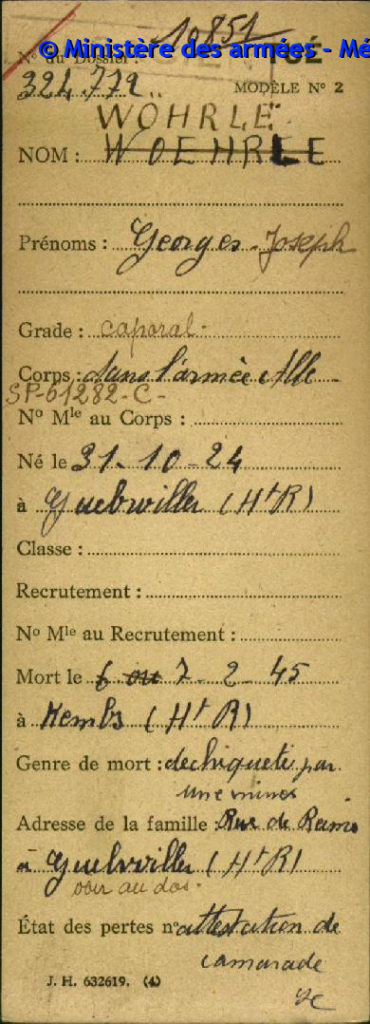 10851
© Ministère des armées - Mé
N° du Dossier :
324.772
MODÈLE N° 2
WOHRLE
NOM : WOEHRLE
Prénoms : Georges - Joseph
Grade : caporal -
Corps : dans l'armée Alle -
SP-61282-C-
N° Mle au Corps :
Né le 31-10-24
à Guebwiller (Ht R)
Classe :
Recrutement :
N° Mle au Recrutement :
Mort le 6 ou 7-2-45
à Kembs (Ht R)
Genre de mort : dechiqueté par
une mines
Adresse de la famille : Rue de
à Guebwiller (Ht R)
voir au dos.
État des pertes n° attestation de
camarade
J. H. 632619. (4)